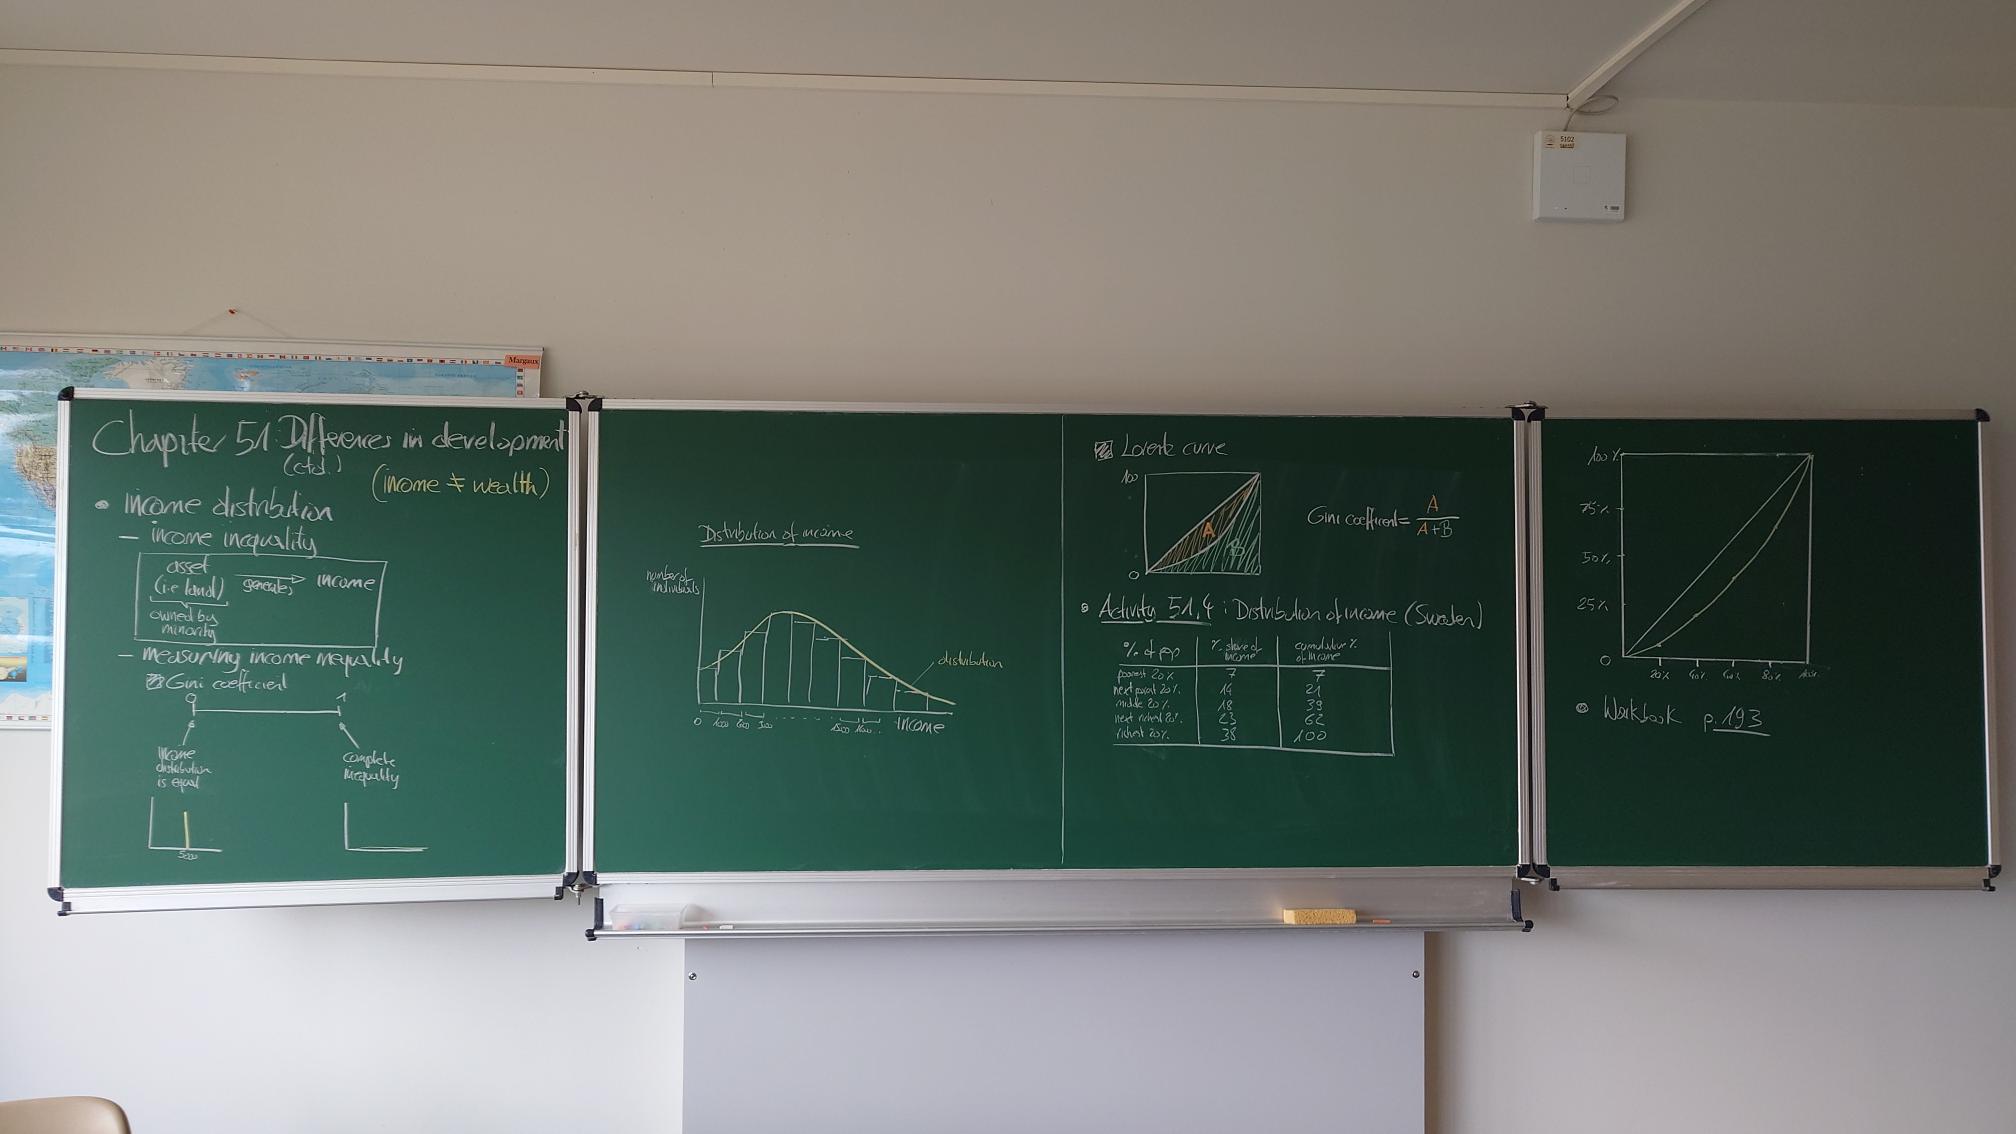 Margaux
5102
Chapter 51: Differences in development
(ctd.)
(income ≠ wealth)
• income distribution
– income inequality
asset
(i.e land)
generates
income
owned by
minority
– measuring income inequality
Gini coefficient
0
1
income
distribution
is equal
complete
inequality
5000
Distribution of income
number of
individuals
distribution
0
1000
income
Lorenz curve
100
A
B
0
Gini coefficient = A
A+B
• Activity 51.4 : Distribution of income (Sweden)
% of pop
% share of
income
cumulative %
of income
poorest 20% 7 7
next poorest 20% 14 21
middle 20% 18 39
next richest 20% 23 62
richest 20% 38 100
100%
75%
50%
25%
0
20% 40% 60% 80% 100%
• Workbook p. 193